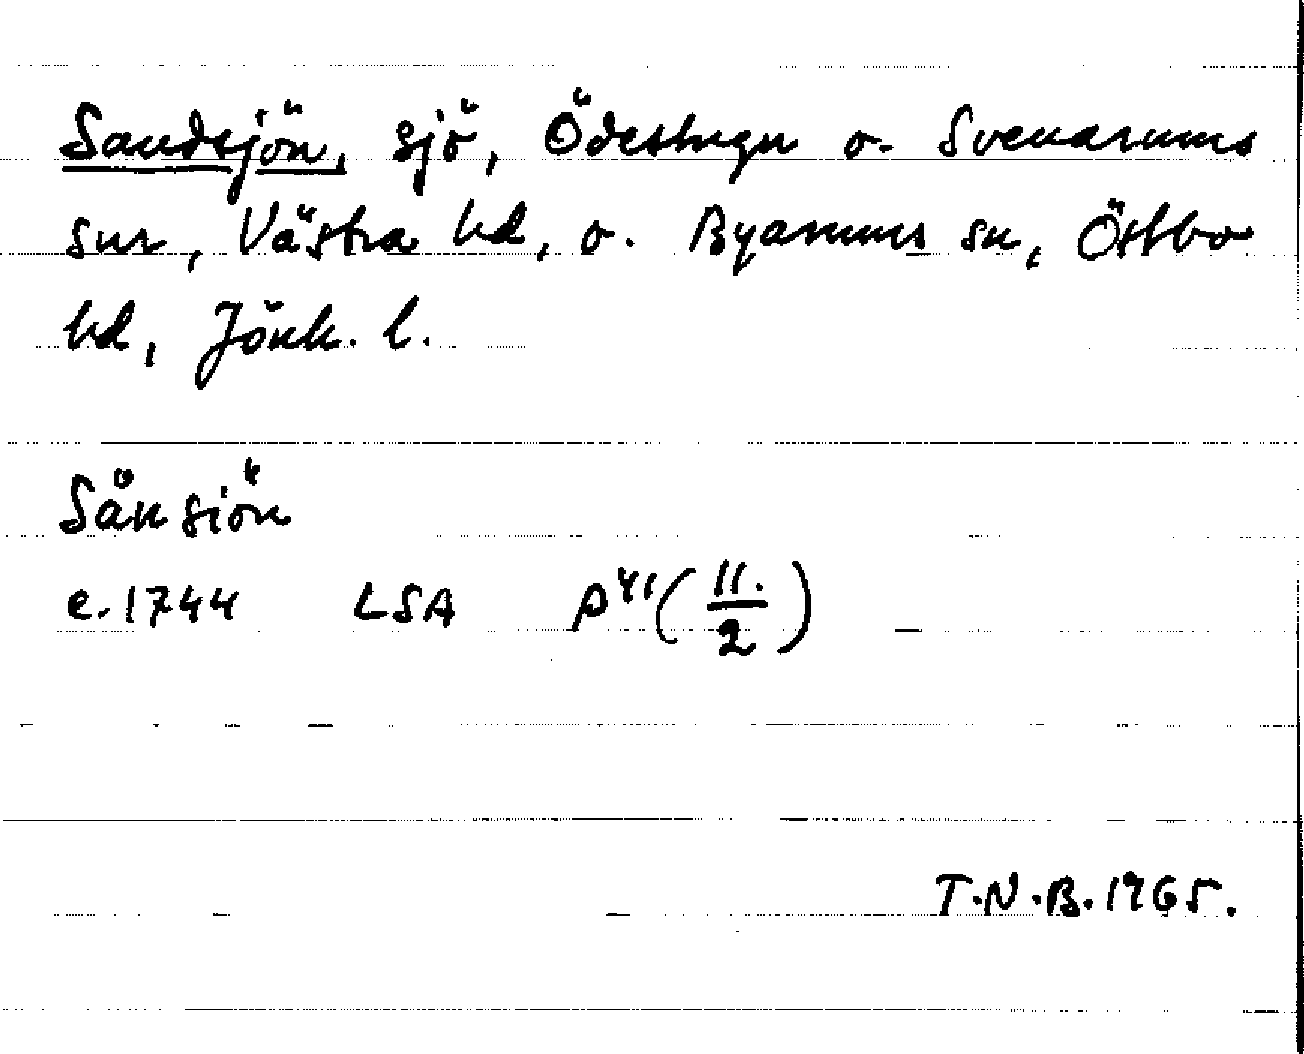 Sandsjön, sjö, Ödestugu o. Svenarums
snr, Västra hd, o. Byarums sn, Östbo
hd, Jönk. l.
Sånsiön
c. 1744 LSA P⁴¹(11./2)
T.N.B. 1965.